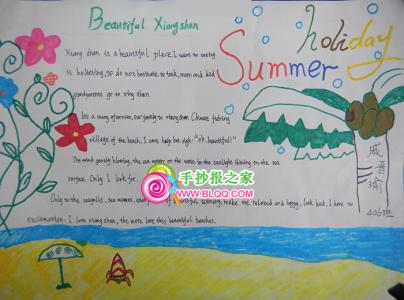 Beautiful Xiangshan
Summer holiday
Xiang shan is a beautiful place. I want to
is believing, so do not hesitate to took, mom and dad
grandparents go to xiang shan.
It's a sunny afternoon, our family to xiang shan Chinese fishing
village of the beach, I can't help but sigh: "oh, beautiful!"
The wind gently blowing, the sea in the sunlight shining on the sea
surface. Only I look far,
手抄报之家
WWW.BLQQ.COM
Only to the seagulls, sea waves, beautiful scenery, make me relaxed and happy, look back, I have to
exclamation: I love xiang shan, the more love this beautiful beaches.
戚
瑜
406班